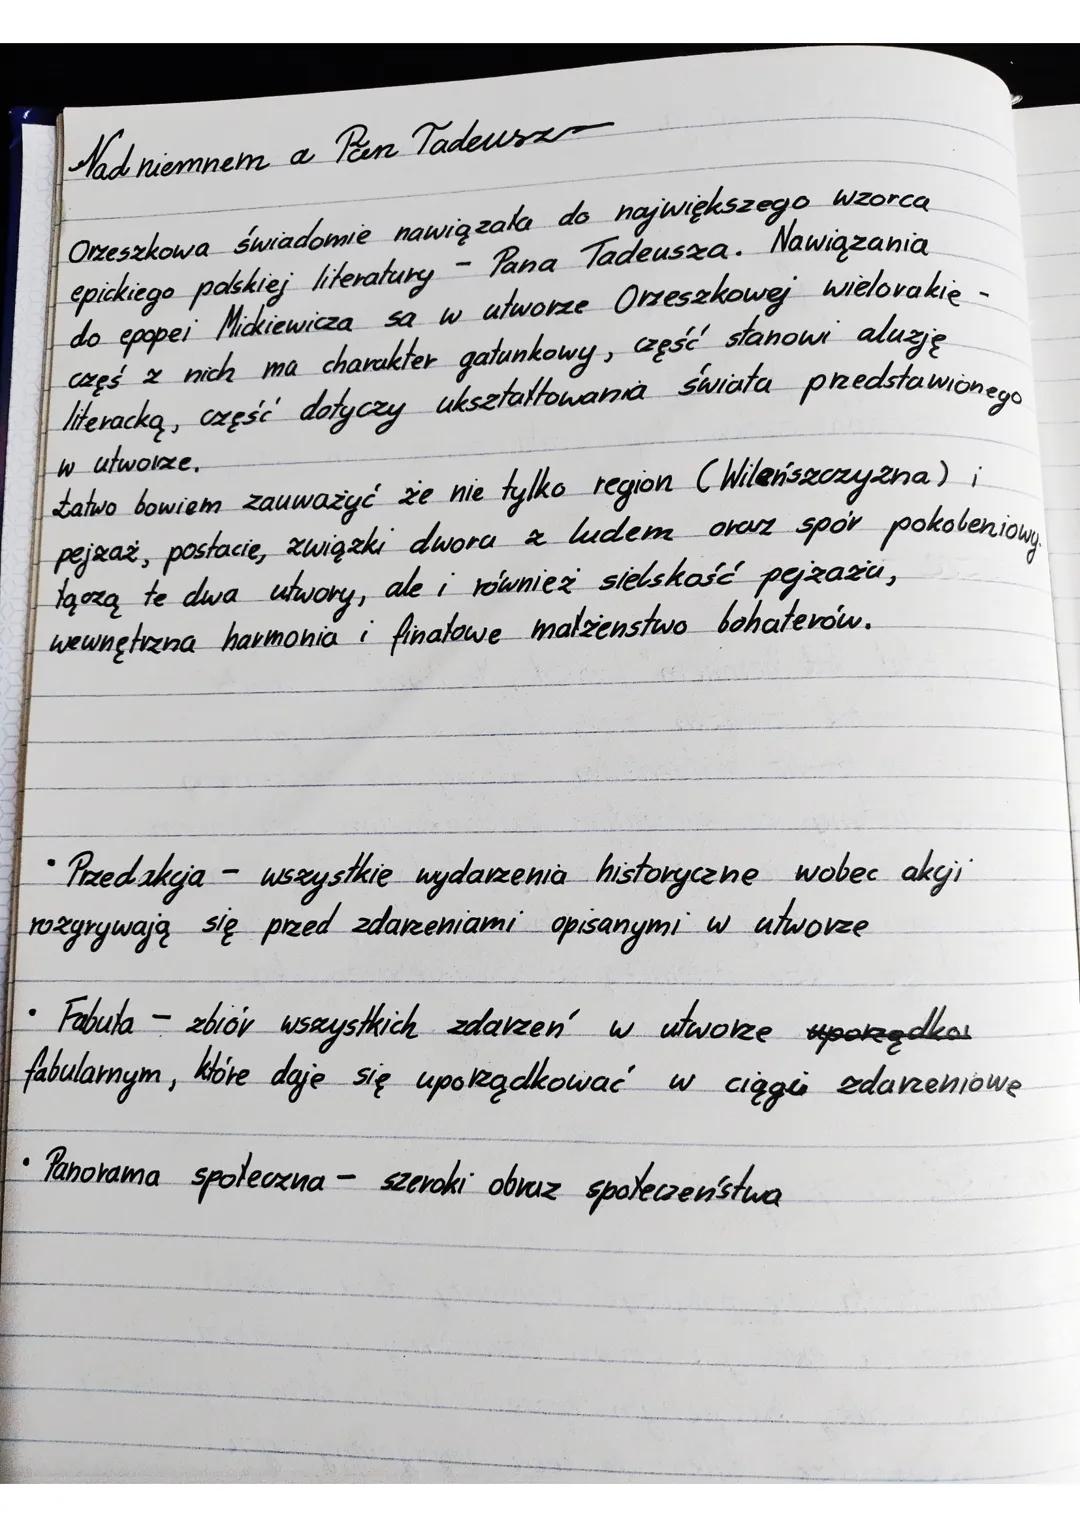 Nad niemnem a Pan Tadeusz
Orzeszkowa świadomie nawiązała do największego wzorca
epickiego polskiej literatury - Pana Tadeusza. Nawiązania
do epopei Mickiewicza sa w utworze Orzeszkowej wielorakie -
częś z nich ma charakter gatunkowy, część stanowi aluzję
literacką, część dotyczy ukształtowania świata przedstawionego
w utworze.
Łatwo bowiem zauważyć że nie tylko region (Wileńszczyzna) i
pejzaż, postacie, związki dworu z ludem oraz spór pokoleniowy.
łączą te dwa utwory, ale i również sielskość pejzażu,
wewnętrzna harmonia i finałowe małżeństwo bohaterów.
• Przedakcja - wszystkie wydarzenia historyczne wobec akcji
rozgrywają się przed zdarzeniami opisanymi w utworze
• Fabuła - zbiór wszystkich zdarzeń w utworze
fabularnym, które daje się uporządkować w ciągi zdarzeniowe
• Panorama społeczna - szeroki obraz społeczeństwa